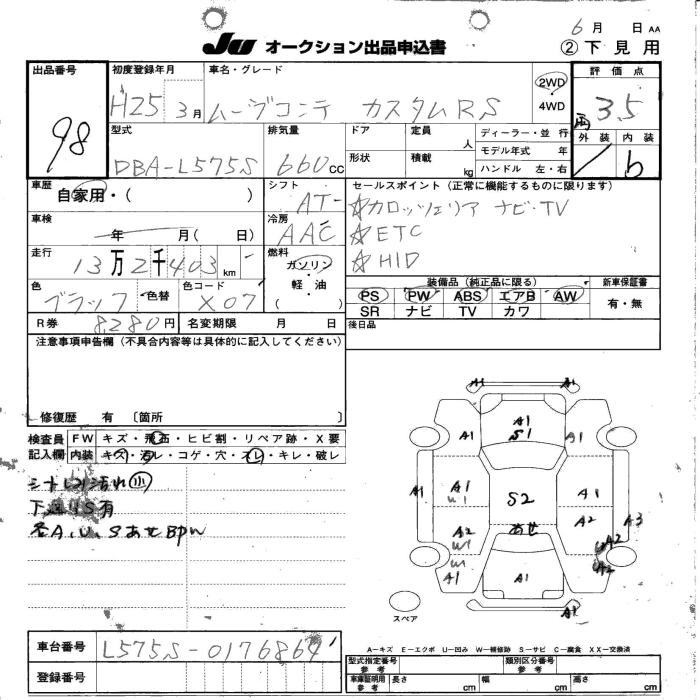 6 月 日 AA
JU オークション出品申込書 ② 下見用
出品番号 初度登録年月 車名・グレード 2WD 評価点
98 H25 3月 ムーヴコンテ カスタムRS 4WD 3.5
型式 排気量 ドア 定員 人 ディーラー・並行 外装 内装
DBA-L575S 660 cc 形状 積載 kg モデル年式 年 b
ハンドル 左・右
車歴 自家用・( ) シフト AT セールスポイント(正常に機能するものに限ります)
車検 年 月( 日) 冷房 AAC ☆カロッツェリア ナビ・TV
☆ETC
走行 13万2千403km 燃料 ガソリン ☆HID
軽・油
( )
色 ブラック 色替 色コード X07 装備品(純正品に限る) 新車保証書
PS PW ABS エアB AW 有・無
SR ナビ TV カワ
R券 8,280円 名変期限 月 日 後日品
注意事項申告欄(不具合内容等は具体的に記入してください)
修復歴 有〔箇所 〕
検査員 FW キズ・飛石・ヒビ割・リペア跡・X要
記入欄 内装 キズ・汚レ・コゲ・穴・スレ・キレ・破レ
シートスレ汚れ㊥
下廻りS有
各A、U、Sあせ
A1 A1
A1
S1
A1 A1
A1 A1 U1 S2 A1
A2 W1 あせ A2 A3
W1 A1 A2 A2
A1
A1
スペア
車台番号 L575S-0176864
登録番号
A-キズ E-エクボ U-凹み W-補修跡 S-サビ C-腐食 XX-交換済
型式指定番号 参考 類別区分番号 参考
車庫証明用 参考 長さ cm 幅 cm 高さ cm